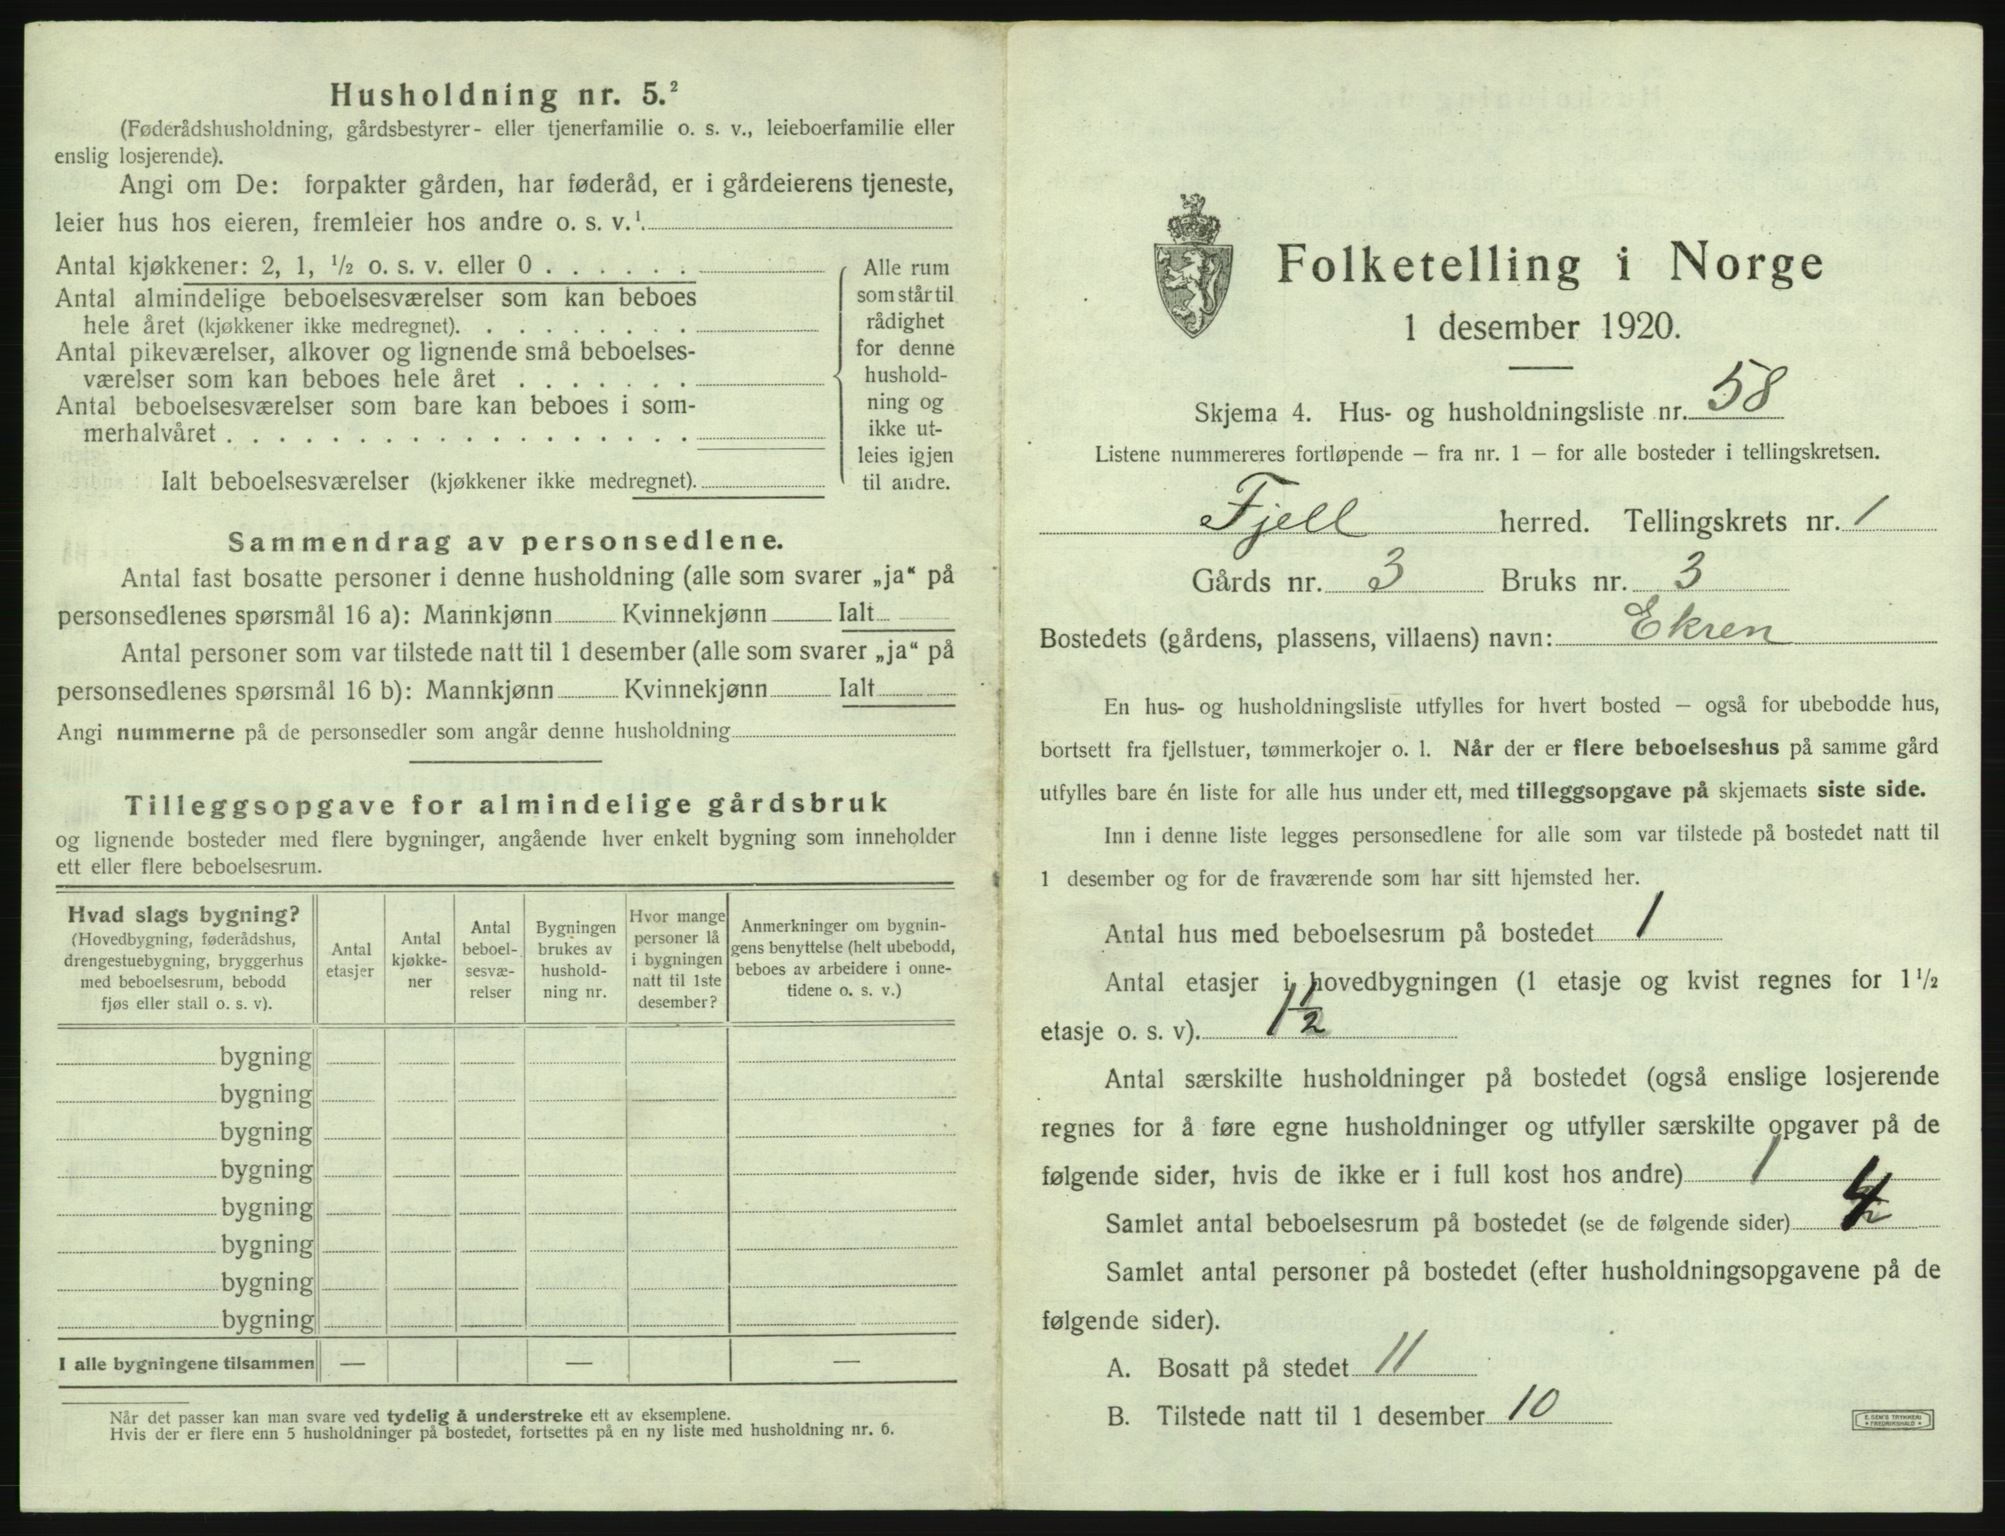 Husholdning nr. 5.²
(Føderådshusholdning, gårdsbestyrer- eller tjenerfamilie o. s. v., leieboerfamilie eller
enslig losjerende).
Angi om De: forpakter gården, har føderåd, er i gårdeierens tjeneste,
leier hus hos eieren, fremleier hos andre o. s. v.¹.
Antal kjøkkener: 2, 1, ½ o. s. v. eller 0 . . . . . .
Antal almindelige beboelsesværelser som kan beboes
hele året (kjøkkener ikke medregnet). . . . . . . . .
Antal pikeværelser, alkover og lignende små beboelses-
værelser som kan beboes hele året . . . . . . .
Antal beboelsesværelser som bare kan beboes i som-
merhalvåret . . . . . . . . . . . . . . . . . .
Ialt beboelsesværelser (kjøkkener ikke medregnet).
Alle rum
som står til
rådighet
for denne
hushold-
ning og
ikke ut-
leies igjen
til andre.
Sammendrag av personsedlene.
Antal fast bosatte personer i denne husholdning (alle som svarer „ja“ på
personsedlenes spørsmål 16 a): Mannkjønn Kvinnekjønn Ialt
Antal personer som var tilstede natt til 1 desember (alle som svarer „ja“ på
personsedlenes spørsmål 16 b): Mannkjønn Kvinnekjønn Ialt
Angi nummerne på de personsedler som angår denne husholdning
Tilleggsopgave for almindelige gårdsbruk
og lignende bosteder med flere bygninger, angående hver enkelt bygning som inneholder
ett eller flere beboelsesrum.
Hvad slags bygning?
(Hovedbygning, føderådshus,
drengestuebygning, bryggerhus
med beboelsesrum, bebodd
fjøs eller stall o. s. v).
Antal
etasjer
Antal
kjøkke-
ner
Antal
beboel-
sesvæ-
relser
Bygningen
brukes av
hushold-
ning nr.
Hvor mange
personer lå
i bygningen
natt til 1ste
desember?
Anmerkninger om bygnin-
gens benyttelse (helt ubebodd,
beboes av arbeidere i onne-
tidene o. s. v.)
bygning
bygning
bygning
bygning
bygning
bygning
bygning
bygning
I alle bygningene tilsammen — — —
Når det passer kan man svare ved tydelig å understreke ett av eksemplene.
Hvis der er flere enn 5 husholdninger på bostedet, fortsettes på en ny liste med husholdning nr. 6.
Folketelling i Norge
1 desember 1920.
Skjema 4. Hus- og husholdningsliste nr. 58
Listene nummereres fortløpende – fra nr. 1 – for alle bosteder i tellingskretsen.
Fjell herred. Tellingskrets nr. 1
Gårds nr. 3 Bruks nr. 3
Bostedets (gårdens, plassens, villaens) navn: Ekren
En hus- og husholdningsliste utfylles for hvert bosted – også for ubebodde hus,
bortsett fra fjellstuer, tømmerkojer o. l. Når der er flere beboelseshus på samme gård
utfylles bare én liste for alle hus under ett, med tilleggsopgave på skjemaets siste side.
Inn i denne liste legges personsedlene for alle som var tilstede på bostedet natt til
1 desember og for de fraværende som har sitt hjemsted her.
Antal hus med beboelsesrum på bostedet 1
Antal etasjer i hovedbygningen (1 etasje og kvist regnes for 1½
etasje o. s. v). 1½
Antal særskilte husholdninger på bostedet (også enslige losjerende
regnes for å føre egne husholdninger og utfyller særskilte opgaver på de
følgende sider, hvis de ikke er i full kost hos andre) 1
Samlet antal beboelsesrum på bostedet (se de følgende sider) 4
Samlet antal personer på bostedet (efter husholdningsopgavene på de
følgende sider).
A. Bosatt på stedet 11
B. Tilstede natt til 1 desember 10
E. SEM'S TRYKKERI
FREDRIKSHALD